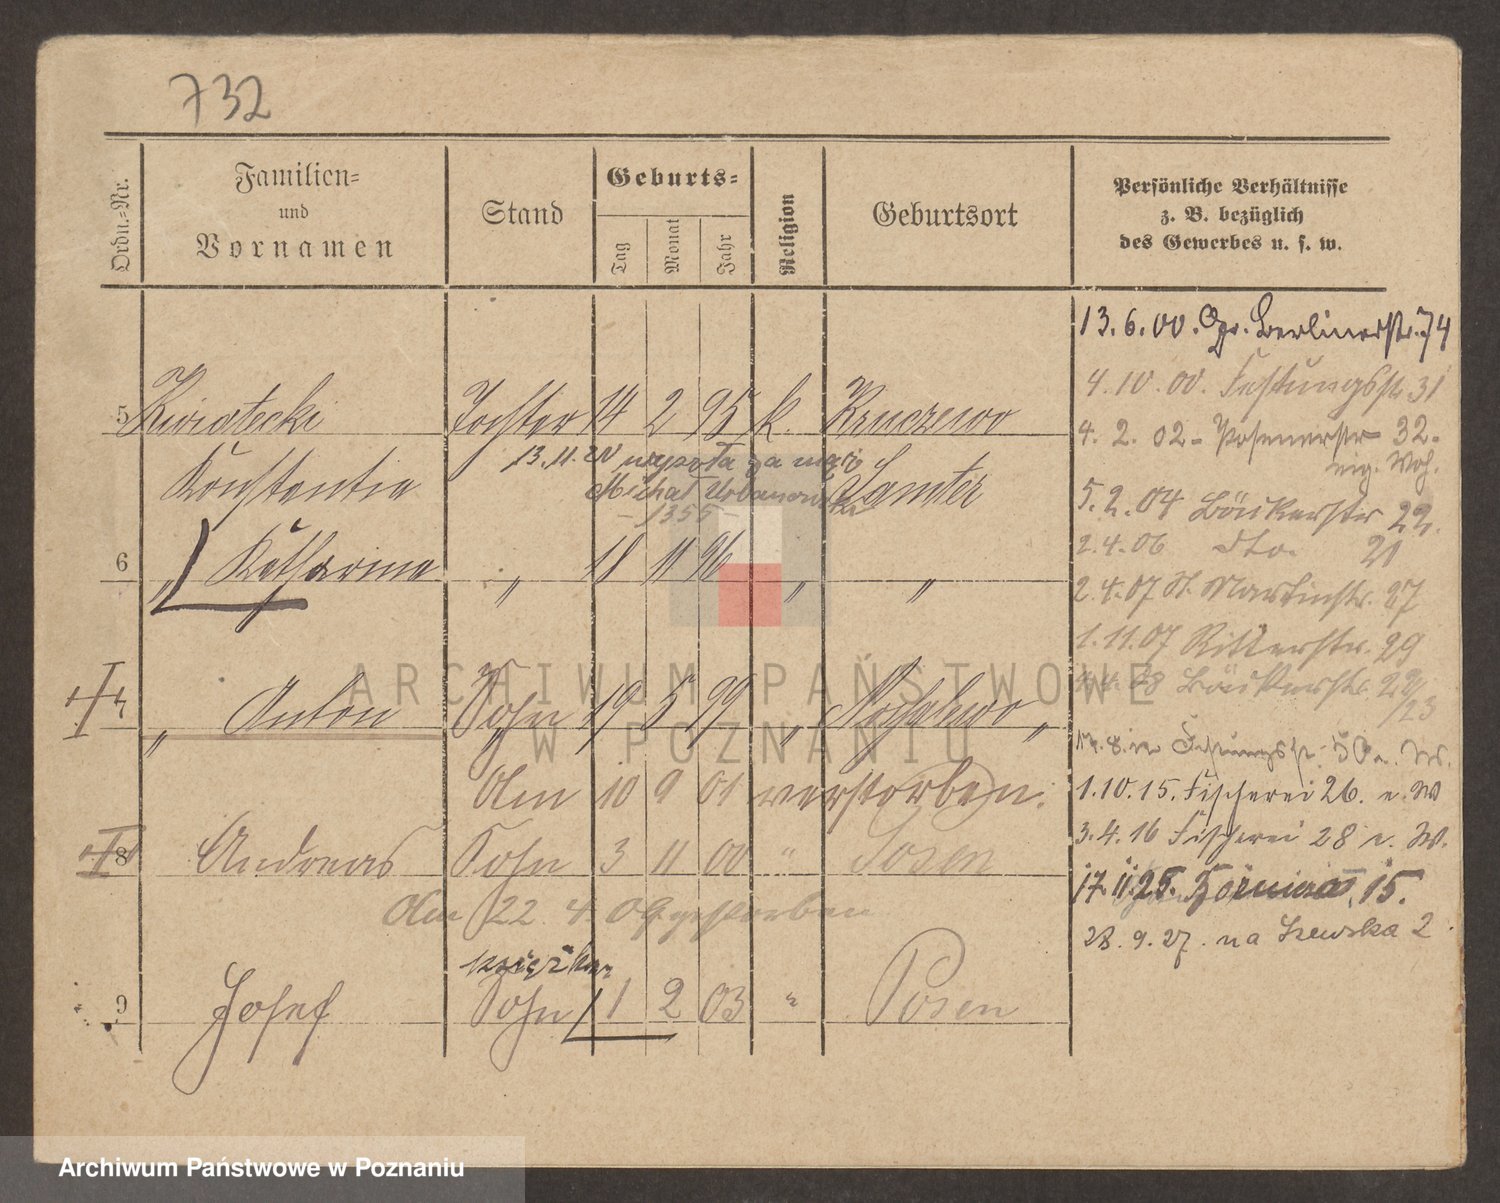 732
Ordn.-Nr.
Familien-
und
Vornamen
Stand
Geburts-
Tag Monat Jahr
Religion
Geburtsort
Persönliche Verhältnisse
z. B. bezüglich
des Gewerbes u. s. w.
5 Kwiatecki Tochter 14 2 95 k. Kruczewo
Konstantia Samter
13.11.20 wyszła za mąż
Michał Urbanowski
- 1355 -
6 " Katharina " 18 11 96 " "
7 " Anton Sohn 19 5 99 " "
Am 10 9 01 verstorben.
8 Andreas Sohn 3 11 00 " Posen
Am 22. 4. 04 gestorben
książka
9 Josef Sohn 1 2 03 " Posen
13.6.00. Gr. Berlinerstr. 74
4.10.00. Festungsstr. 31
4. 2. 02 - Posenerstr 32.
eig. Woh.
5.2.04 Bäckerstr 22.
2.4.06 dto. 21
2.4.07 St. Martinstr. 27
1.11.07 Ritterstr. 29
08 Bäckerstr. 22/23
Festungsstr. 50 e. W.
1.10.15. Fischerei 26. e. W
3.4.16 Fischerei 28 e. W.
17.11.25. 15.
28.9.27. na Szewska 2.
ARCHIWUM PAŃSTWOWE
W POZNANIU
Archiwum Państwowe w Poznaniu